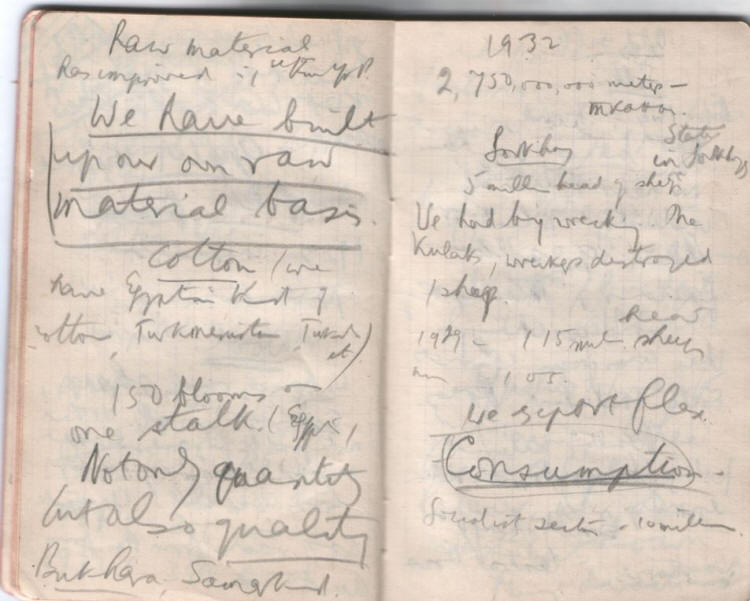 Raw material
has improved
We have built
up our own raw
material basis.
Cotton (we
have Egyptian kind of
cotton, Turkmenistan
150 blooms on
one stalk. (Egypt)
Not only quantity
but also quality
Bukhara, Samarkand.
1932
2,750,000,000 meters –
State
in
5 million head of sheep
We had big wrecking. The
Kulaks, wreckers destroyed
sheep.
head
1929 – 115 mil. sheep
We export flax.
Consumption.
Socialist sector – 10 million